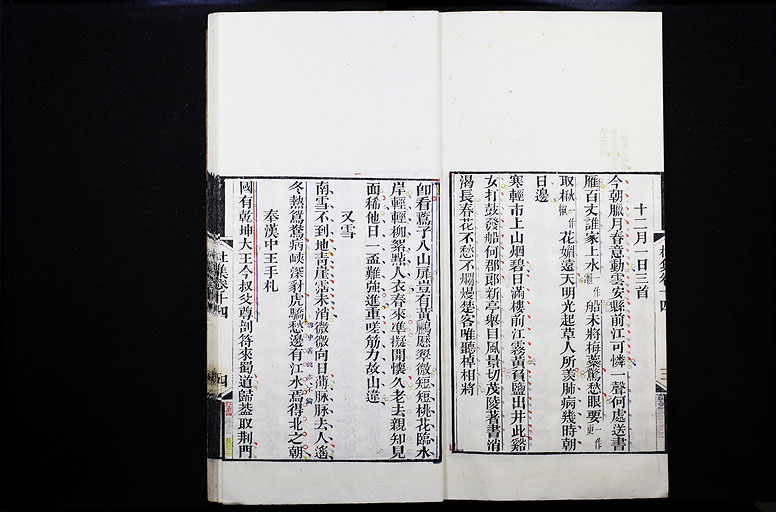 十二月一日三首
今朝臘月春意動雲安縣前江可憐一聲何處送書
雁百丈誰家上水一作瀨船未將梅蘂驚愁眼要一作更
取椒一作楸花媚遠天明光起草人所羨肺病幾時朝
日邊
寒輕市上山烟碧日滿樓前江霧黃負鹽出井此谿
女打鼓發船何郡郎新亭舉目風景切茂陵著書消
渴長春花不愁不爛熳楚客唯聽棹相將
卽看鷰子入山扉豈有黃鸝歷翠微短短桃花臨水
岸輕輕柳絮點人衣春來準擬開懷久老去親知見
面稀他日一盃難強進重嗟筋力故山違
又雪
南雪不到地青崖霑未消微微向日薄脉脉去人遙
冬熱鴛鴦病峽深豺虎驕愁邊有江水焉得北之朝
奉漢中王手札
國有乾坤大王今叔父尊剖符來蜀道歸蓋取荆門
杜集卷十四
四